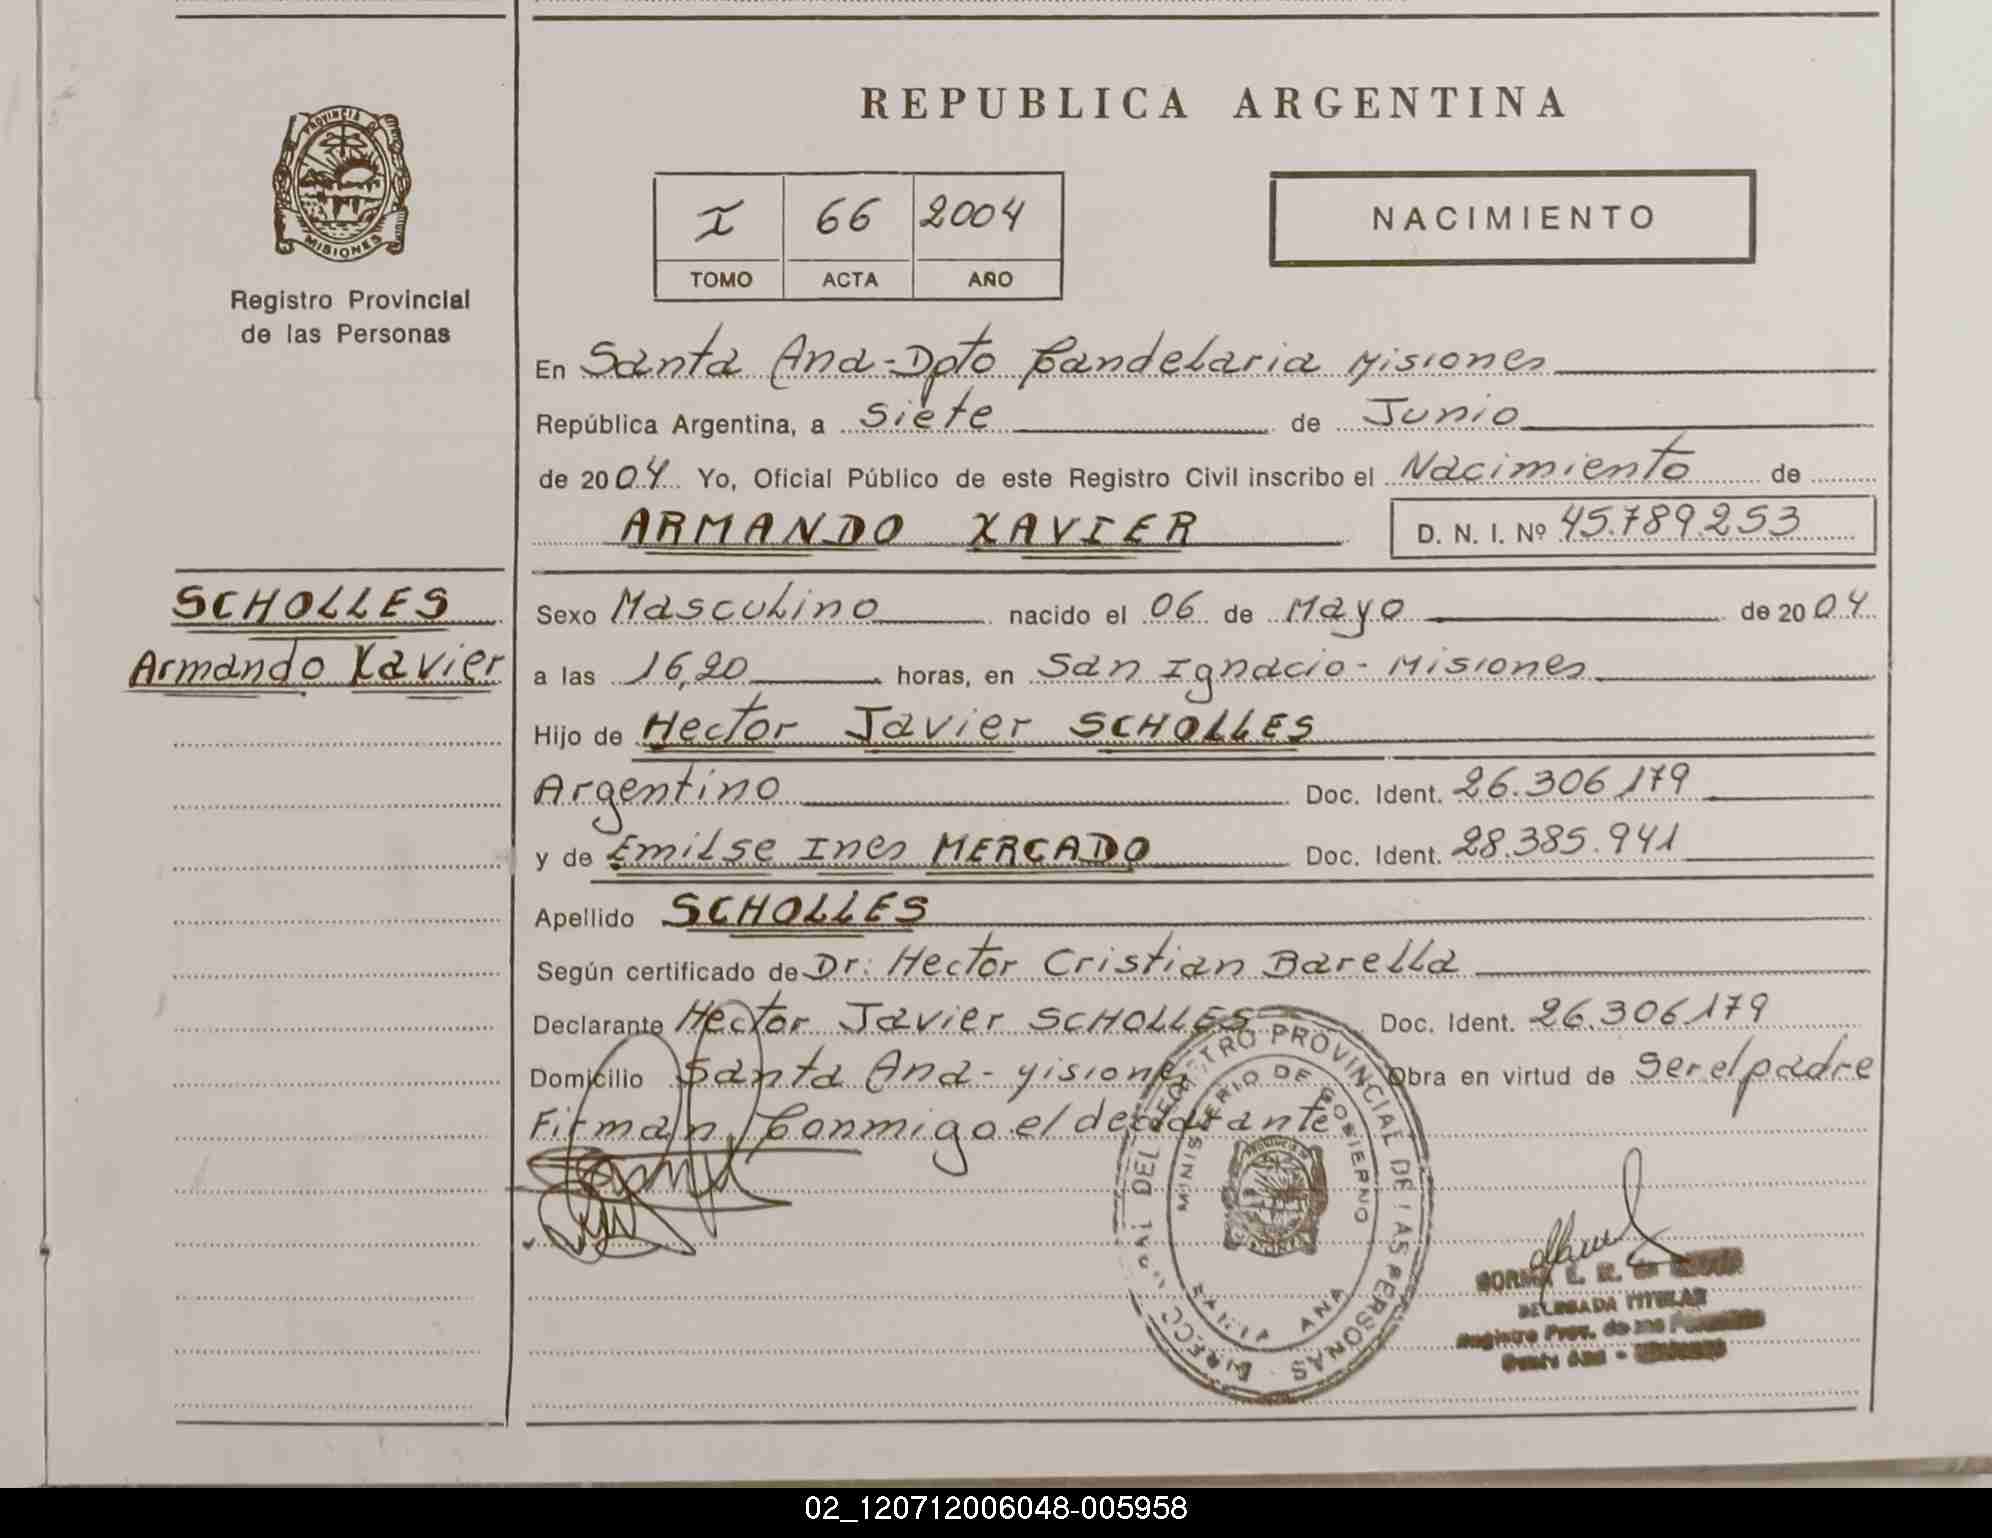 REPUBLICA ARGENTINA
PROVINCIA DE MISIONES
Registro Provincial
de las Personas
I 66 2004
TOMO ACTA AÑO
NACIMIENTO
En Santa Ana - Dpto Candelaria Misiones
República Argentina, a siete de Junio
de 2004 Yo, Oficial Público de este Registro Civil inscribo el Nacimiento de
ARMANDO XAVIER D. N. I. Nº 45.789.253
SCHOLLES
Armando Xavier
Sexo Masculino nacido el 06 de Mayo de 2004
a las 16,20 horas, en San Ignacio - Misiones
Hijo de Hector Javier SCHOLLES
Argentino Doc. Ident. 26.306.179
y de Emilse Ines MERCADO Doc. Ident. 28.385.941
Apellido SCHOLLES
Según certificado de Dr: Hector Cristian Barella
Declarante Hector Javier SCHOLLES Doc. Ident. 26.306.179
Domicilio Santa Ana - Misiones Obra en virtud de ser el padre
Firman Conmigo el declarante
DEL REGISTRO PROVINCIAL DE LAS PERSONAS
MINISTERIO DE GOBIERNO
SANTA ANA
DELEGADA TITULAR
Registro Prov. de las
Santa Ana -
02_120712006048-005958